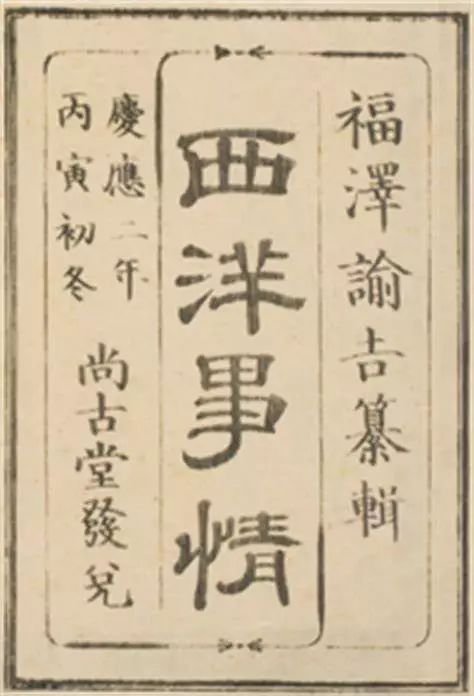 福澤諭吉纂輯
西洋事情
慶應二年
丙寅初冬
尚古堂發兌